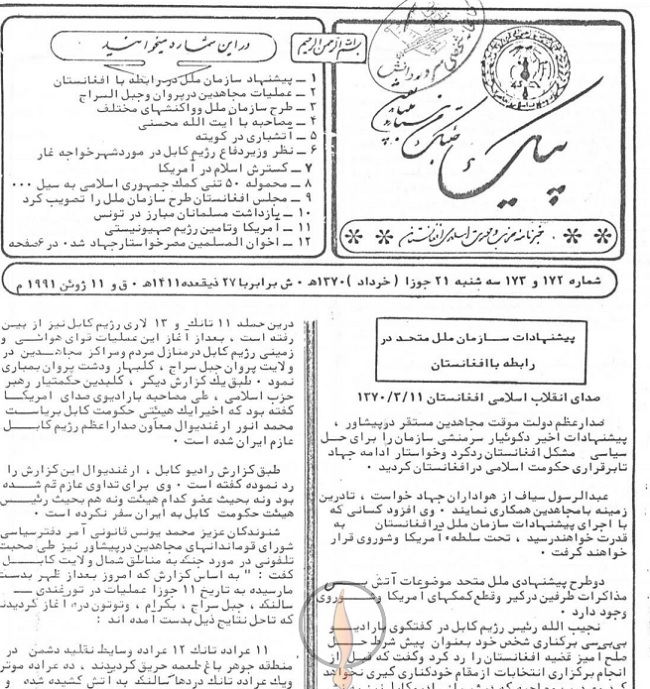 بسم الله الرحمن الرحیم
در این شماره میخوانید
۱ ــ پیشنهاد سازمان ملل دررابطه با افغانستان
۲ ــ عملیات مجاهدین درپروان وجبل السراج
۳ ــ طرح سازمان ملل وواکنشهای مختلف
۴ ــ مصاحبه با آیت الله محسنی
۵ ــ آتشباری در کویته
۶ ــ نظر وزیردفاع رژیم کابل در موردشهرخواجه غار
۷ ــ گسترش اسلام در آمریکا
۸ ــ محموله ۵۰ تنی کمک جمهوری اسلامی به سیل ۰۰۰
۹ ــ مجلس افغانستان طرح سازمان ملل را تصویب کرد
۱۰ ــ بازداشت مسلمانان مبارز در تونس
۱۱ ــ آمریکا وتامین رژیم صهیونیستی
۱۲ ــ اخوان المسلمین مصرخواستارجهاد شد۰ در ۶صفحه
پیام
خبرنامه حزب وحدت اسلامی افغانستان
شماره ۱۷۲ و ۱۷۳ سه شنبه ۲۱ جوزا ( خرداد )۱۳۷۰هـ ۰ ش برابربا ۲۷ ذیقعده۱۴۱۱هـ ۰ ق و ۱۱ ژوئن ۱۹۹۱ م
پیشنهادات ســـازمان ملل متحـد در
رابطه باافغانستان
صدای انقلاب اسلامی افغانستان ۱۳۷۰/۳/۱۱
صدارعظم دولت موقت مجاهدین مستقر درپیشاور ،
پیشنهادات اخیر دکوئیار سرمنشی سازمان را برای حــل
سیاسی مشکل افغانستان ردکرد وخواستار ادامه جهاد
تابرقراری حکومت اسلامی درافغانستان گردید ۰
عبدالرسول سیاف از هواداران جهاد خواست ، تادرین
زمینه بامجاهدین همکاری نمایند ۰ وی افزود کسانی که
با اجرای پیشنهادات سازمان ملل درافغانستان به
قدرت خواهندرسید ، تحت سلطهء آمریکا وشوروی قرار
خواهند گرفت ۰
دوطرح پیشنهادی ملل متحد موضوعات آتش بــس
مذاکرات طرفین درگیر وقطع کمکهای آمریکا و شوروی
وجود دارد ۰
نجیب الله رئیس رژیم کابل در گفتگوی بارادیــو
بی‌بی‌سی برکناری شخص خود بعنوان پیش شرط حــل
صلح آمیز قضیه افغانستان را رد کرد وگفت که قبل از
انجام برگزاری انتخابات ازمقام خودکناری گیری نخواهد
درین حمله ۱۱ تانک و ۱۳ لاری رژیم کابل نیز از بیـن
رفته است ، بعداز آغاز این عملیات قوای هوائـی و
زمینی رژیم کابل درمنازل مردم ومراکز مجاهــدین در
ولایت پروان جبل سراج ، گلبهار ودشت پروان بمباری
نمود ۰ طبق یک گزارش دیگر ، گلبدین حکمتیار رهبر
حزب اسلامی ، طی مصاحبه بارادیوی صدای امریکــا
گفته بود که اخیرایک هیئتی حکومت کابل بریاســت
محمد انور ارغندیوال معاون صدراعظم رژیم کابـــل
عازم ایران شده است ۰
طبق گزارش رادیو کابل ، ارغندیوال این گزارش را
رد نموده گفته است ۰ وی برای تداوی عازم قم شــده
بود ونه بحیث عضو کدام هیئت ونه هم بحیث رئیــس
هیئت حکومت کابل به ایران سفر نکرده است ۰
شنوندگان عزیز محمد یونس قانونی آمر دفترسیاسی
شورای قوماندانهای مجاهدین درپیشاور نیز طی صحبت
تلفونی در مورد جنگ به مناطق شمال ولایت کابــــل
گفت : " به اساس گزارش که امروز بعداز ظهر بدست
مارسیده به تاریخ ۱۱ جوزا عملیات در تورغندی ــ
سالنگ ، جبل سراج ، بگرام ، وتوتون دره آغاز گردیده
که تاحل نتایج ذیل بدست آمده اند :
۱۱ عراده تانک ۱۲ عراده وسایط نقلیه دشمن در
منطقه جوهر باغ طعمه حریق گردیدند ، ده عراده موتر
ویک عراده تانک درده‌ها سالنگ به آتش کشیده شده و